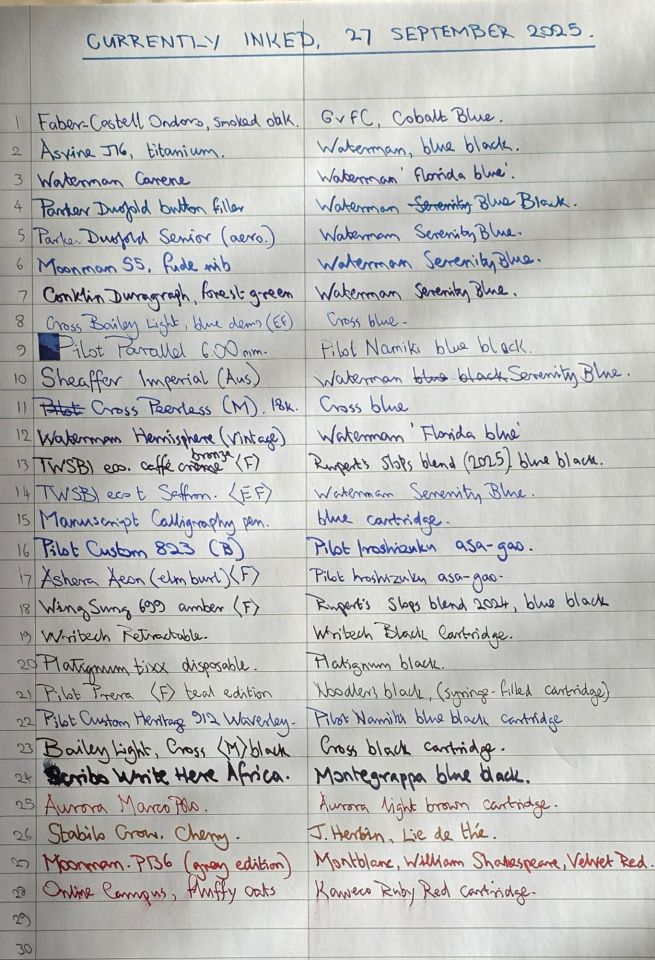 CURRENTLY INKED, 27 SEPTEMBER 2025.
1 Faber-Castell Ondoro, smoked oak. GvFC, Cobalt Blue.
2 Asvine J16, titanium. Waterman, blue black.
3 Waterman Carene Waterman 'Florida blue'.
4 Parker Duofold button filler Waterman Serenity Blue Black.
5 Parker Duofold Senior (aero.) Waterman Serenity Blue.
6 Moonman S5, fude nib Waterman Serenity Blue.
7 Conklin Duragraph, forest green Waterman Serenity Blue.
8 Cross Bailey Light, blue demo (EF) Cross blue.
9 Pilot Parallel 6.00 mm. Pilot Namiki blue black.
10 Sheaffer Imperial (Aus) Waterman blue black Serenity Blue.
11 Pilot Cross Peerless (M). 18k. Cross blue
12 Waterman Hemisphere (vintage) Waterman 'Florida blue'
13 TWSBI eco. caffé bronze <F) Rupert's Slops blend (2025) blue black.
14 TWSBI eco t Saffron. <EF) Waterman Serenity Blue.
15 Manuscript Calligraphy pen. blue cartridge.
16 Pilot Custom 823 (B) Pilot Iroshizuku asa-gao.
17 Ashera Aeon (elm burl) <F) Pilot Iroshizuku asa-gao.
18 Wing Sung 699 amber <F) Rupert's Slops blend 2024, blue black
19 Writech Retractable. Writech Black Cartridge.
20 Platignum tixx disposable. Platignum black.
21 Pilot Prera <F) teal edition Noodler's black, (syringe-filled cartridge)
22 Pilot Custom Heritage 912 Waverley. Pilot Namiki blue black cartridge
23 Bailey Light, Cross <M) black Cross black cartridge.
24 Scribo Write Here Africa. Montegrappa blue black.
25 Aurora Marco Polo. Aurora light brown cartridge.
26 Stabilo Grow, Cherry. J. Herbin, Lie de thé.
27 Moonman. PB6 (grey edition) Montblanc, William Shakespeare, Velvet Red.
28 Online Campus, fluffy cats Kaweco Ruby Red cartridge.
29
30